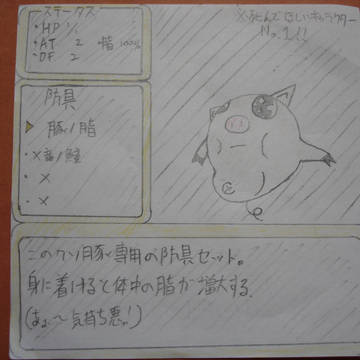 ステータス
・HP 1/2
・AT 2
・DF 2
脂 100%
※ふとんでほしいキャラクター
No.1!!
防具
▶ 豚ノ脂
・×番ノ鮭
・×
・×
このクソ豚専用の防具セット。
身に着けると体中の脂が増大する。
(あぁ~気持ち悪っ!)